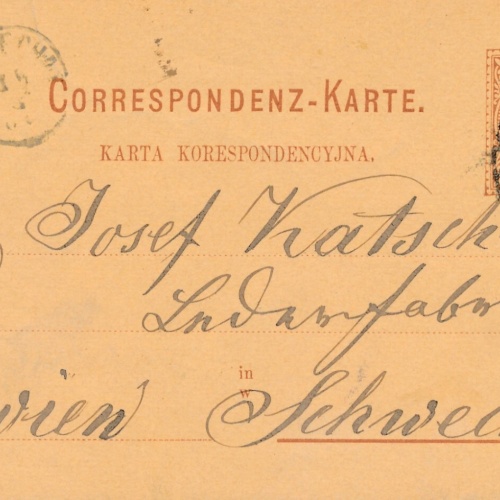 CORRESPONDENZ-KARTE.
KARTA KORESPONDENCYJNA.
Josef Katsch
Lederfabr
in
w
wien Schwec